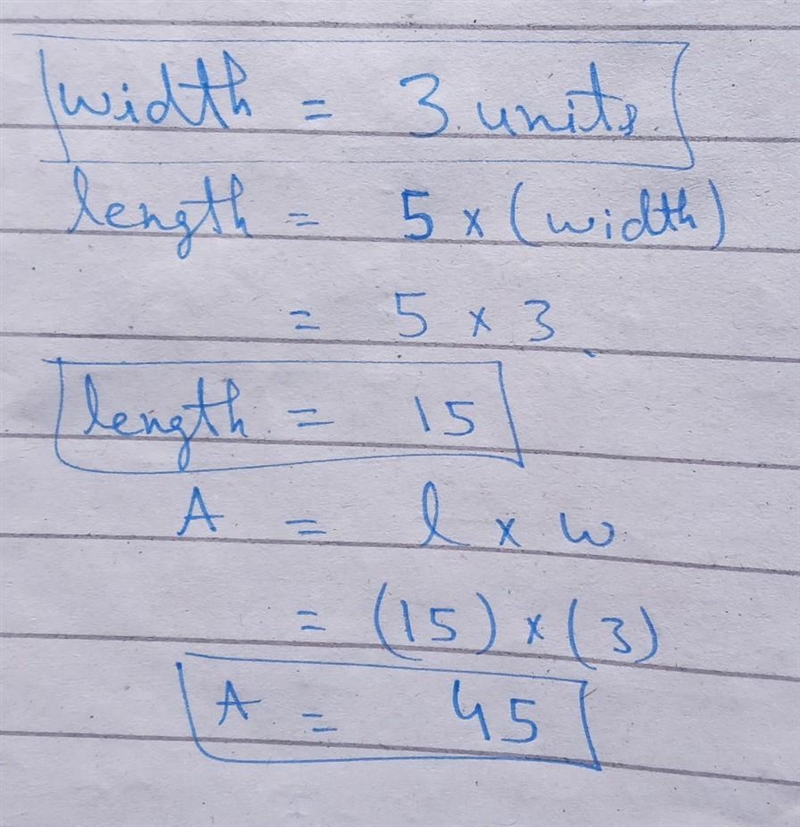 width = 3 units
length = 5 × (width)
= 5 × 3
length = 15
A = l × w
= (15) × (3)
A = 45